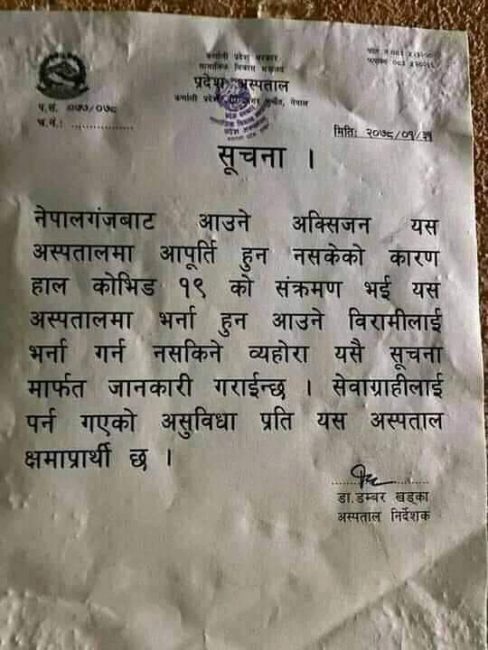 कर्णाली प्रदेश सरकार
सामाजिक विकास मन्त्रालय
प्रदेश अस्पताल
कर्णाली प्रदेश, सुर्खेत, नेपाल
प.सं. २०७७/०७८
च.नं.: ................
मिति: २०७८/०१/
सूचना ।
नेपालगंजबाट आउने अक्सिजन यस
अस्पतालमा आपूर्ति हुन नसकेको कारण
हाल कोभिड १९ को संक्रमण भई यस
अस्पतालमा भर्ना हुन आउने विरामीलाई
भर्ना गर्न नसकिने व्यहोरा यसै सूचना
मार्फत जानकारी गराईन्छ । सेवाग्राहीलाई
पर्न गएको असुविधा प्रति यस अस्पताल
क्षमाप्रार्थी छ ।
डा.डम्बर खड्का
अस्पताल निर्देशक